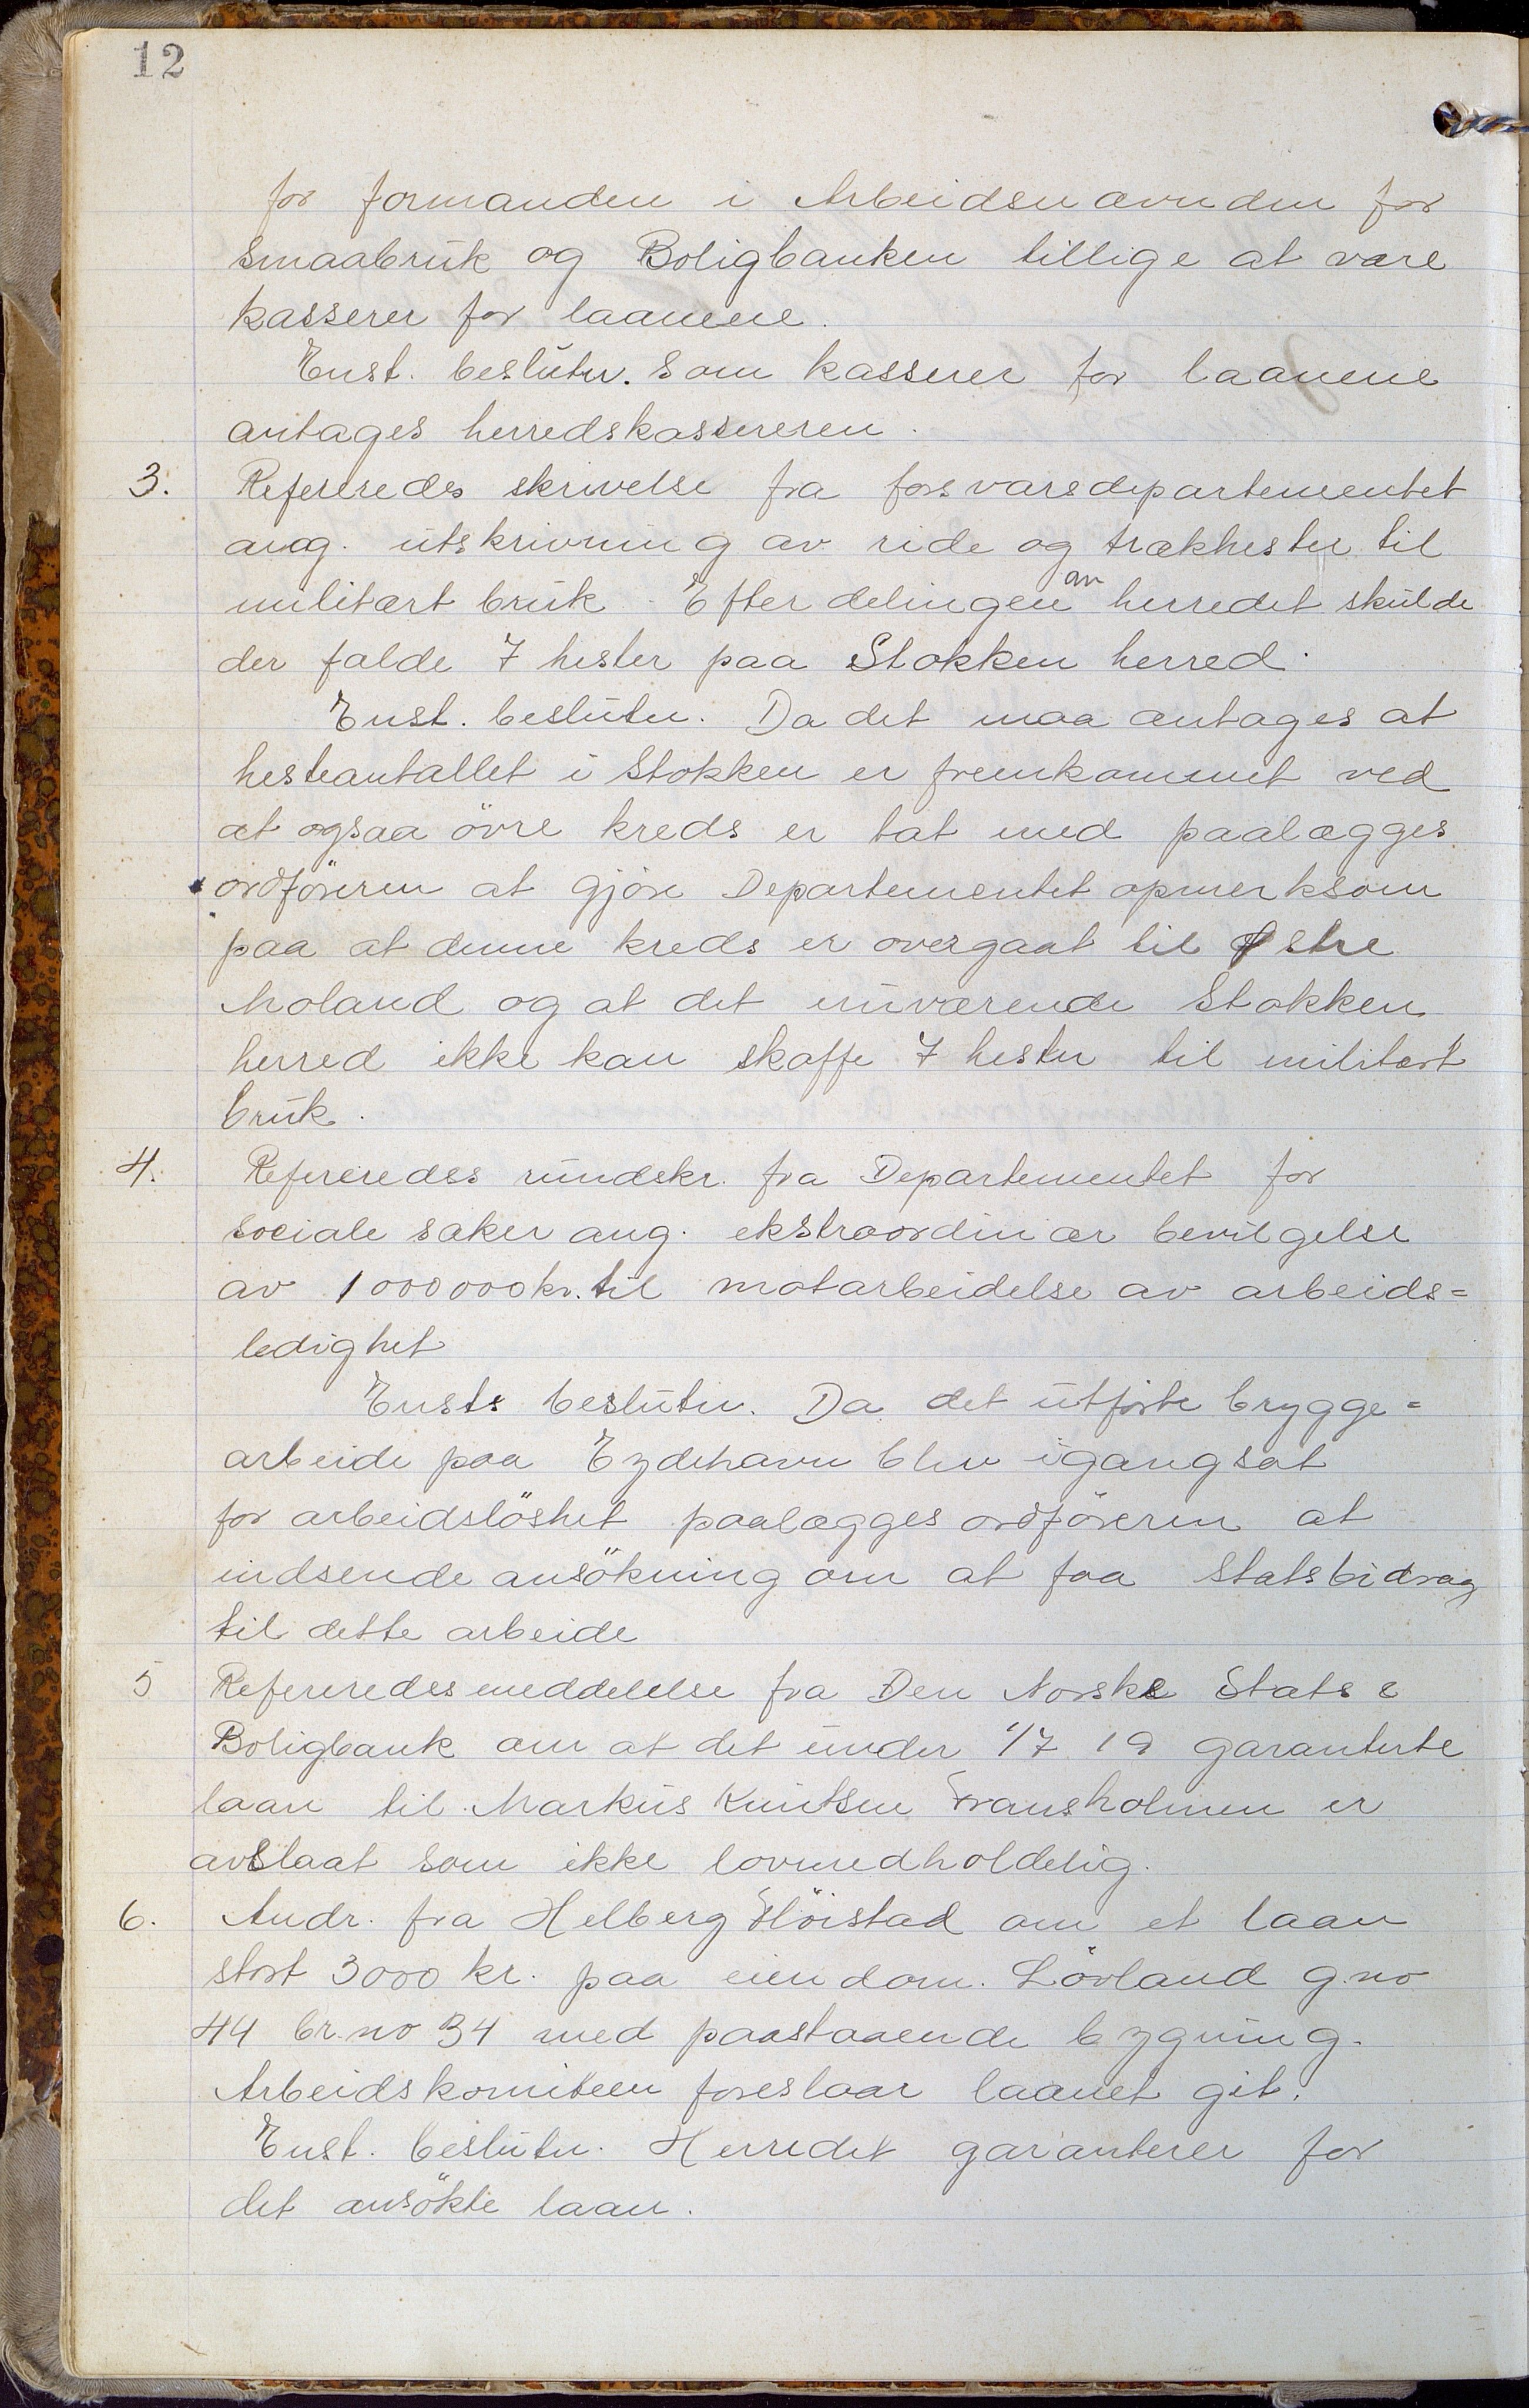 12
for formanden i Arbeidsnævnden for
smaabruk og Boligbanken tillige at være
kasserer for laanene.
Enst. beslutn. Som kasserer for laanene
antages herredskassereren.
3. Refereredes skrivelse fra forsvarsdepartementet
ang. utskrivning av ride og trækhester til
militært bruk. Efter delingen av herredet skulde
der falde 7 hester paa Stokken herred.
Enst. beslutn. Da det maa antages at
hesteantallet i Stokken er fremkommet ved
at ogsaa övre kreds er tat med paalægges
ordföreren at gjöre Departementet opmerksom
paa at denne kreds er overgaat til Østre
Moland og at det nuværende Stokken
herred ikke kan skaffe 7 hester til militært
bruk.
4. Refereredes rundskr. fra Departementet for
sociale saker ang. ekstraordinær bevilgelse
av 1000000 kr. til motarbeidelse av arbeids=
ledighet
Ensts beslutn. Da det utförte brygge=
arbeide paa Eydehavn blev igangsat
for arbeidslöshet paalægges ordföreren at
indsende ansökning om at faa Statsbidrag
til dette arbeide
5 Refereredes meddelelse fra Den Norske Stats
Boligbank om at det under 1/7 19 garanterte
laan til Markus Knutsen Fransholmen er
avslaat som ikke lovmedholdelig.
6. Andr. fra Helberg Höistad om et laan
stort 3000 kr. paa eiendom. Lövland g.no
44 br.no 34 med paastaaende bygning.
Arbeidskomiteen foreslaar laanet git.
Enst. beslutn. Herredet garanterer for
det ansökte laan.